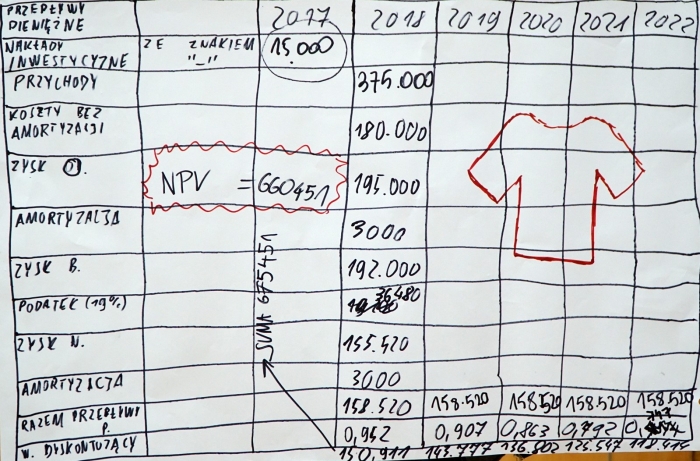 PRZEPŁYWY PIENIĘŻNE 2017 2018 2019 2020 2021 2022
NAKŁADY INWESTYCYJNE ZE ZNAKIEM "-" 15.000
PRZYCHODY 375.000
KOSZTY BEZ AMORTYZACJI 180.000
ZYSK 195.000
NPV = 660451
AMORTYZACJA 3000
ZYSK B. 192.000
SUMA 675451
PODATEK (19%) 36.480
ZYSK N. 155.520
AMORTYZACJA 3000
RAZEM PRZEPŁYWY P. 158.520 158.520 158.520 158.520 158.520
W. DYSKONTUJĄCY 0,952 0,907 0,863 0,792
150.911 143.777